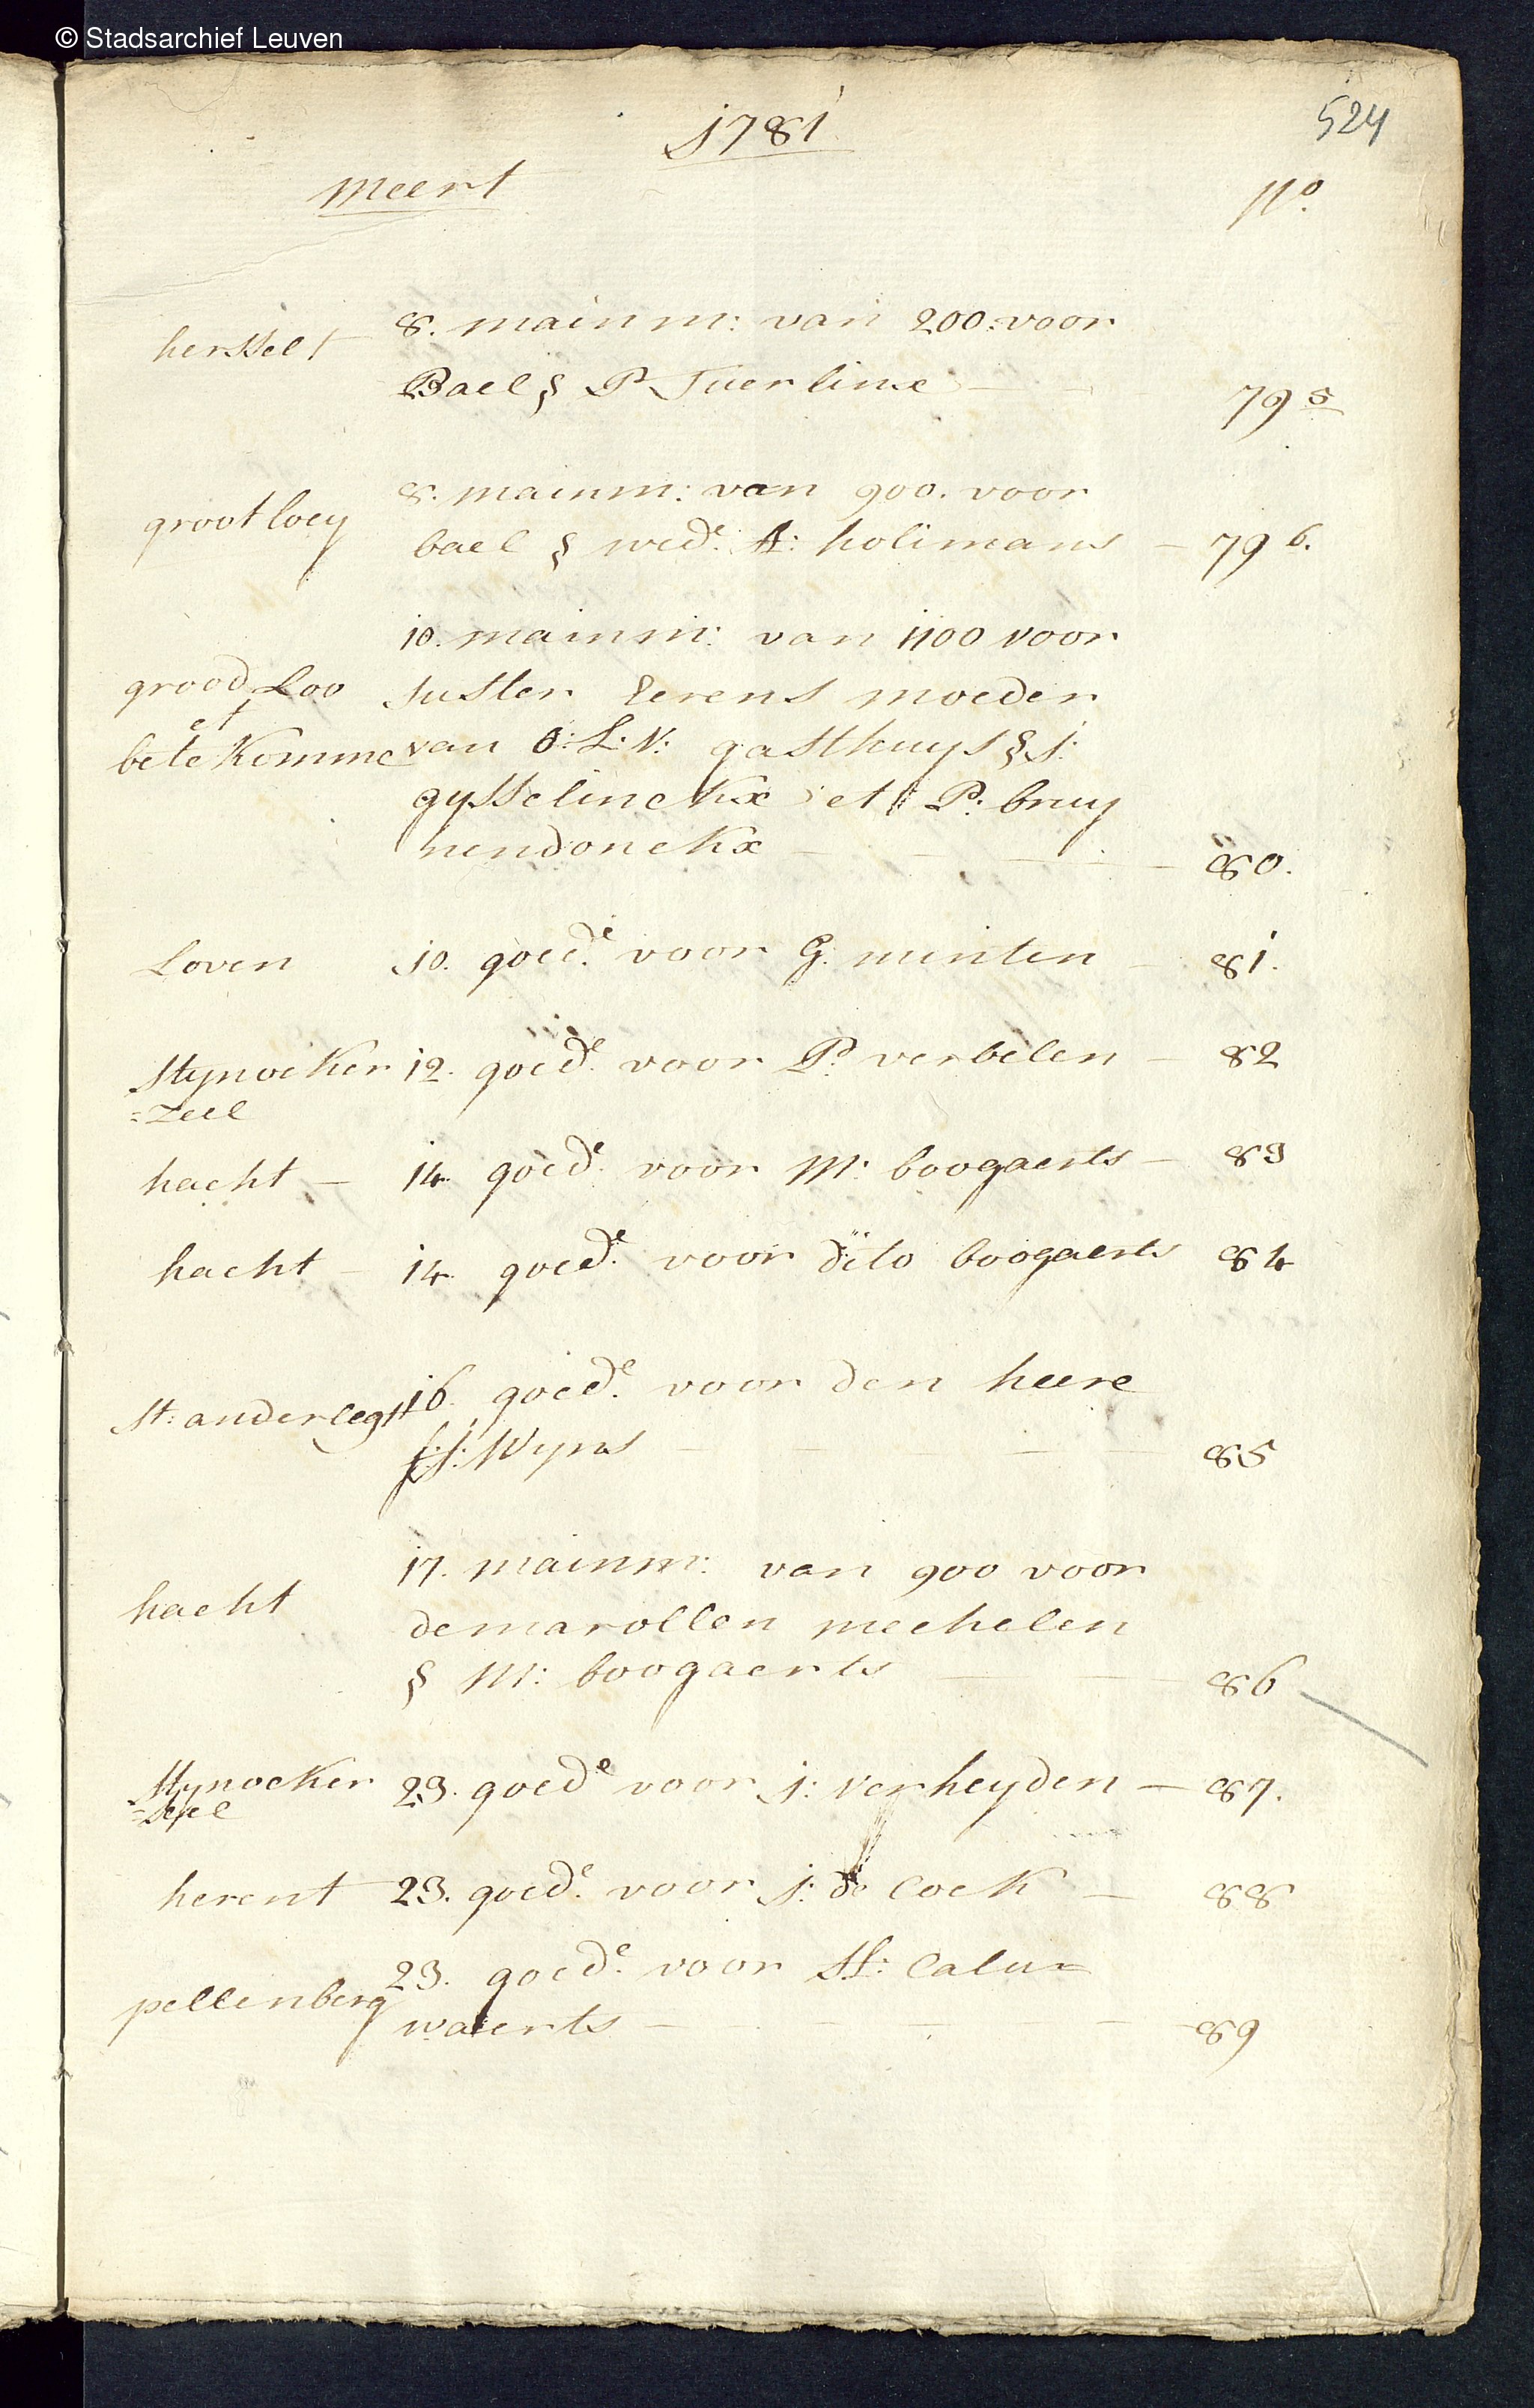 © Stadsarchief Leuven
524
1781
Meert
No.
hersselt
8. mainm: van 200: voor
Bael § P Tuerlinx
79 5
groot loey
8. mainm: van 900. voor
bael § wede. A: holimans 79 6.
10. mainm: van 1100 voor
grood Loo suster Lerens moeder
et
betekomme van O: L: V: gasthuys § J:
gysselinckx et P: bruy
nendonckx 80.
Loven 10. goede. voor G. minten 81.
Stynocker 12. goede. voor P. verbelen 82
=zeel
hacht 14 goede. voor M: boogaerts 83
hacht 14. goede. voor dito boogaerts 84
St: anderlegt 16. goede. voor den heere
J: Wyns 85
17. mainm: van 900 voor
hacht
de marollen mechelen
§ M: boogaerts 86
Stynocker 23. goede voor J: verheyden 87.
herent 23. goede. voor J: de Cock 88
23. goede. voor Calu=
pellenberg
waerts 89